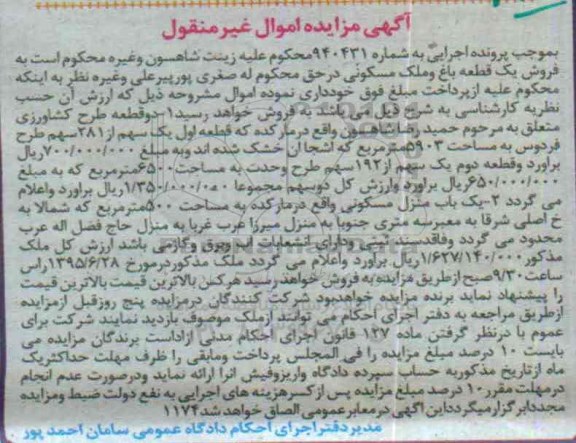 آگهی مزایده اموال غیر منقول
بموجب پرونده اجرایی به شماره ۹۴۰۴۳۱محکوم علیه زینت شاهسون وغیره محکوم است به
فروش یک قطعه باغ وملک مسکونی درحق محکوم له صغری پورپیرعلی وغیره نظر به اینکه
محکوم علیه ازپرداخت مبلغ فوق خودداری نموده اموال مشروحه ذیل که ارزش آن حسب
نظریه کارشناسی به شرح ذیل می باشد به فروش خواهد رسید۱-دوقطعه طرح کشاورزی
متعلق به مرحوم حمید رضا شاهسون واقع درمارکده که قطعه اول یک سهم از۲۸۱سهم طرح
فردوس به مساحت ۵۹۰۳مترمربع که اشجا ان خشک شده اند وبه مبلغ ۷۰۰/۰۰۰/۰۰۰ریال
براورد وقطعه دوم یک سهم از۱۹۲سهم طرح وحدت به مساحت۶۵۰۰مترمربع که به مبلغ
۶۵۰/۰۰۰/۰۰۰ریال براورد وارزش کل دوسهم مجموعا ۱/۳۵۰/۰۰۰/۰۰۰ریال براورد واعلام
می گردد ۲-یک باب منزل مسکونی واقع درمارکده به مساحت ۵۰۰مترمربع که شمالا به
خ اصلی شرقا به معبرسه متری جنوبا به منزل میرزا عرب غربا به منزل حاج فضل اله عرب
محدود می گردد وفاقدسند ثبتی ودارای انشعابات اب وبرق وگازمی باشد ارزش کل ملک
مذکور۱/۶۲۷/۱۴۰/۰۰۰ریال براورد واعلام می گردد ملک مذکوردرمورخ ۱۳۹۵/۶/۲۸راس
ساعت۹/۳۰صبح ازطریق مزایده به فروش خواهد رسید هرکس بالاترین قیمت بالاترین قیمت
را پیشنهاد نماید برنده مزایده خواهدبود شرکت کنندگان درمزایده پنج روزقبل ازمزایده
ازطریق مراجعه به دفتر اجرای احکام می توانند ازملک موصوف بازدید نمایند شرکت برای
عموم با درنظر گرفتن ماده ۱۲۷ قانون اجرای احکام مدنی ازاداست برندگان مزایده می
بایست ۱۰ درصد مبلغ مزایده را فی المجلس پرداخت ومابقی را ظرف مهلت حداکثریک
ماه ازتاریخ مذکوربه حساب سپرده دادگاه واریزوفیش انرا ارائه نماید ودرصورت عدم انجام
درمهلت مقرر۱۰ درصد مبلغ مزایده پس ازکسرهزینه های اجرایی به نفع دولت ضبط ومزایده
مجددابرگزارمیگردداین اگهی درمعابرعمومی الصاق خواهد شد۱۱۷۴
مدیردفتراجرای احکام دادگاه عمومی سامان احمد پور